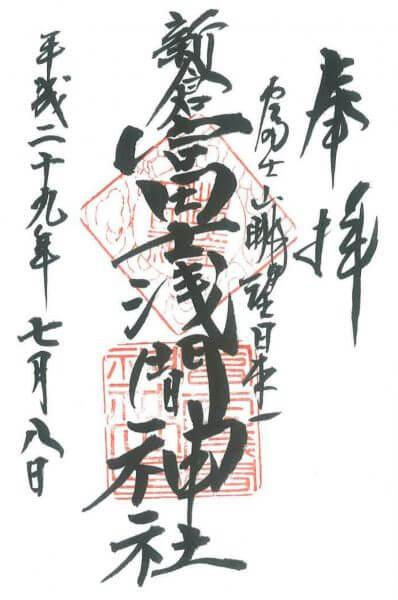 奉拝
富士山眺望日本一
新倉富士浅間神社
平成二十九年七月八日